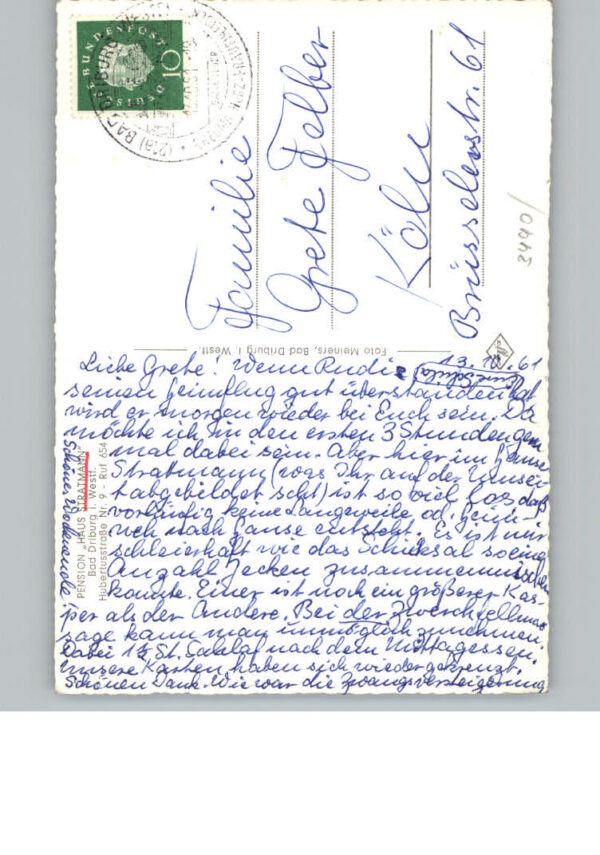 DEUTSCHE BUNDESPOST
10
(21a) BAD DRIBURG (WESTF)
Familie
Grete Felber
Köln
Brüsselerstr. 61
3490/
Foto Meiners, Bad Driburg i. Westf.
PENSION „HAUS STRATMANN"
Bad Driburg i. Westf.
Hubertusstraße Nr. 9 - Ruf 654
13. 10. 61
Liebe Grete! Wenn Rudi
seinen Heimflug gut überstanden hat
wird er morgen wieder bei Euch sein. Da
möchte ich in den ersten 3 Stunden gern
mal dabei sein. Aber hier im Hause
Stratmann (was Ihr auf der
abgebildet seht) ist so viel los daß
vorläufig keine Langeweile od.
nach Hause entsteht. Es ist mir
schleierhaft wie das Schicksal so eine
Anzahl Jecken zusammenwürfeln
konnte. Einer ist noch ein größerer Kas-
per als der Andere. Bei der Zwerchfellmas-
sage kann man unmöglich zunehmen.
Dabei 1½ St. Schlaf nach dem Mittagessen.
Unsere Karten haben sich wieder gekreuzt.
Schönen Dank. Wie war die Zwangsversteigerung
Schönes Wochenende!